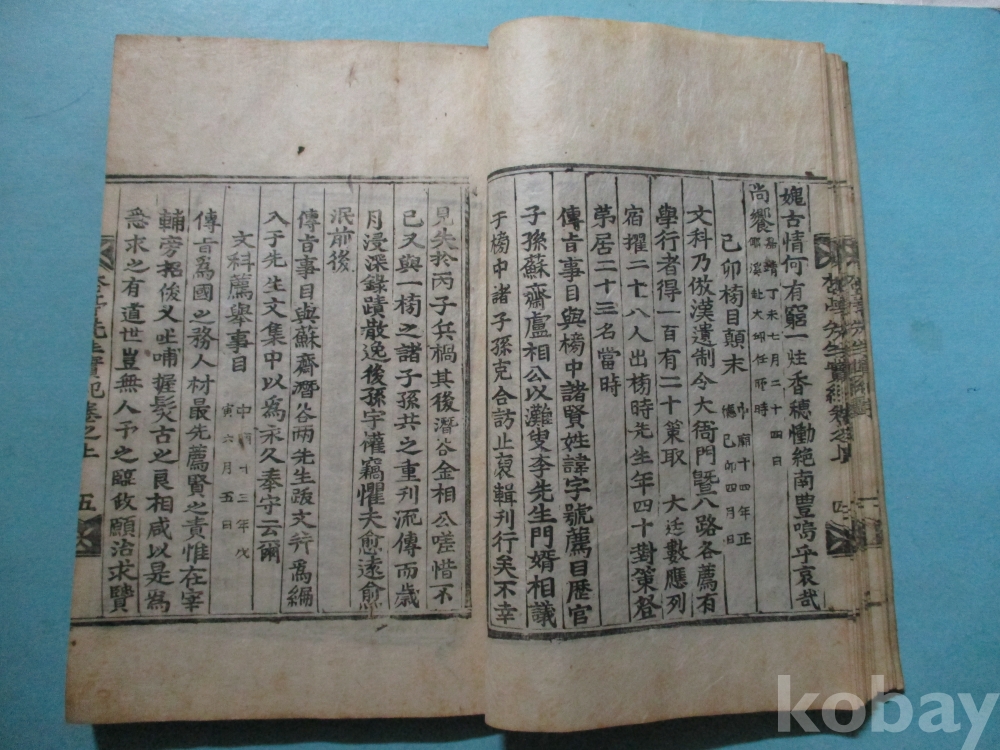 媿古情何有窮一炷香穗慟絕南豊嗚乎哀哉
尙饗
丁未七月二十四日
己卯榜目顛末
中廟十四年正
德己卯四月日
文科乃倣漢遺制令大衙門曁八路各薦有
學行者得一百有二十策取 大廷數應列
宿擢二十八人出榜時先生年四十對策登
第居二十三名當時
傳旨事目與榜中諸賢姓諱字號薦目歷官
子孫蘇齋盧相公以灘叟李先生門婿相議
于榜中諸子孫克合訪止裒輯刊行矣不幸
四
見失於丙子兵禍其後潛谷金相公嗟惜不
已又與一榜之諸子孫共之重刊流傳而歲
月浸深錄蹟散逸後孫字懽竊懼夫愈遠愈
泯前後
傳旨事目與蘇齋潛谷兩先生跋文幷爲編
入于先生文集中以爲永久奉守云爾
文科薦擧事目
中廟十三年戊
寅六月五日
傳旨爲國之務人材最先薦賢之責惟在宰
輔旁招俊乂吐哺握髮古之良相咸以是爲
急求之有道世豈無人予之臨政願治求賢
先生實紀卷之上
五
kobay